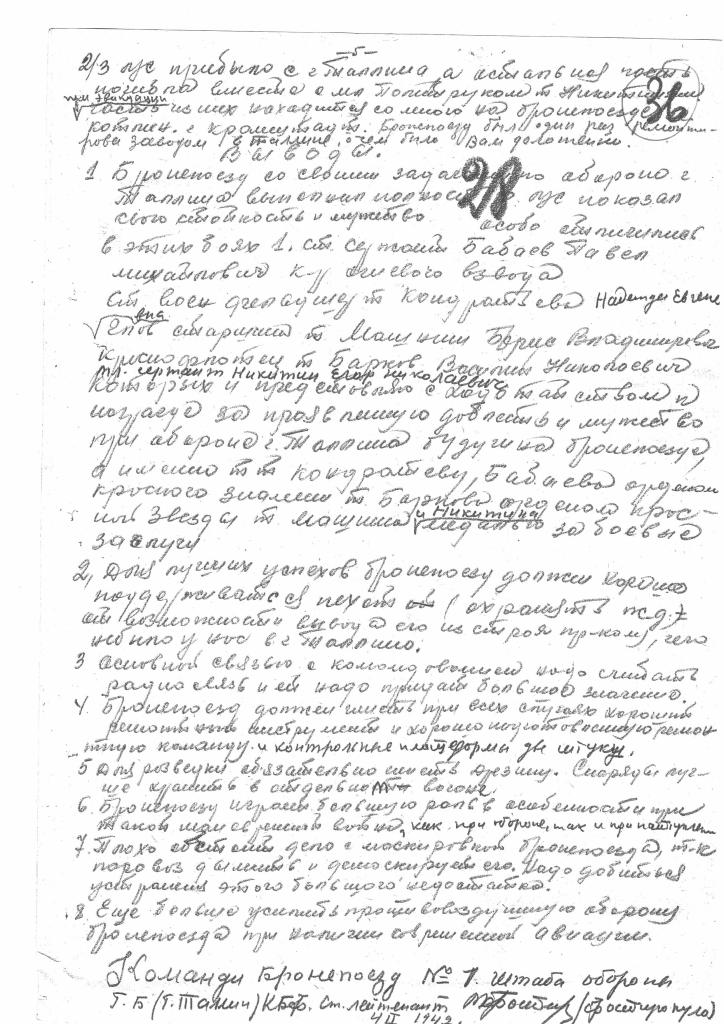 -5-
36
2/3 л/с прибыло с г Таллина а остальная часть
погибла вместе с мл Политруком т Никитиным
при эвакуации
часть из них находится со мною на бронепоезде
г Кронштадт. Бронепоезд был один раз ремонти-
рован заводом в Таллине, о чем было Вам доложено.
Выводы.
28
1 Бронепоезд со своими задачами по обороне г.
Таллина выполнил полностью л/с показал
свою стойкость и мужество особо отличились
в этих боях 1. ст сержант Бабаев Павел
Михайлович к-р огневого взвода
Ст военфельдшер т Кондратьева Надежда Евгень
евна
старшина т Машнин Борис Владимирович
Краснофлотец т Барков Василий Николаевич
мл. сержант Никитин Егор Николаевич
которых и представляю с ходатайством к
награде за проявленную доблесть и мужество
при обороне г. Таллина будучи на бронепоезде,
а именно т т Кондратьеву, Бабаева орденом
красного знамени т Баркова орденом крас-
и Никитина
ной Звезды т. Машнина медалью за боевые
заслуги
2, Для лучших успехов бронепоезд должен хорошо
поддерживаться пехотой (охранять ж.д.
от возможности вывода его из строя пр-ком), чего
не было у нас в г Таллине.
3 Основной связью с командованием надо считать
радиосвязь и ей надо придать большое значение.
4. Бронепоезд должен иметь при всех случаях хороший
ремонтный инструмент и хорошо подготовленную ремон
тную команду и контрольные платформы две штуки.
5 Для разведки обязательно иметь дрезину. Снаряды луч-
ше хранить в отдельном вагоне
6. Бронепоезд играет большую роль в особенности при
такой маневренной войне, как при обороне, так и при наступлении
7. Плохо обстоит дело с маскировкой бронепоезда, т-к
паровоз дымить и демаскирует его. Надо добиться
устранения этого большого недостатка.
8. Еще больше усилить противовоздушную оборону
бронепоезда при наличии современной авиации.
Командир Бронепоезд № 1. штаба обороны
Г.Б (г. Талин) КБФ. ст. лейтенант (Фостиропуло)
4 II 1942